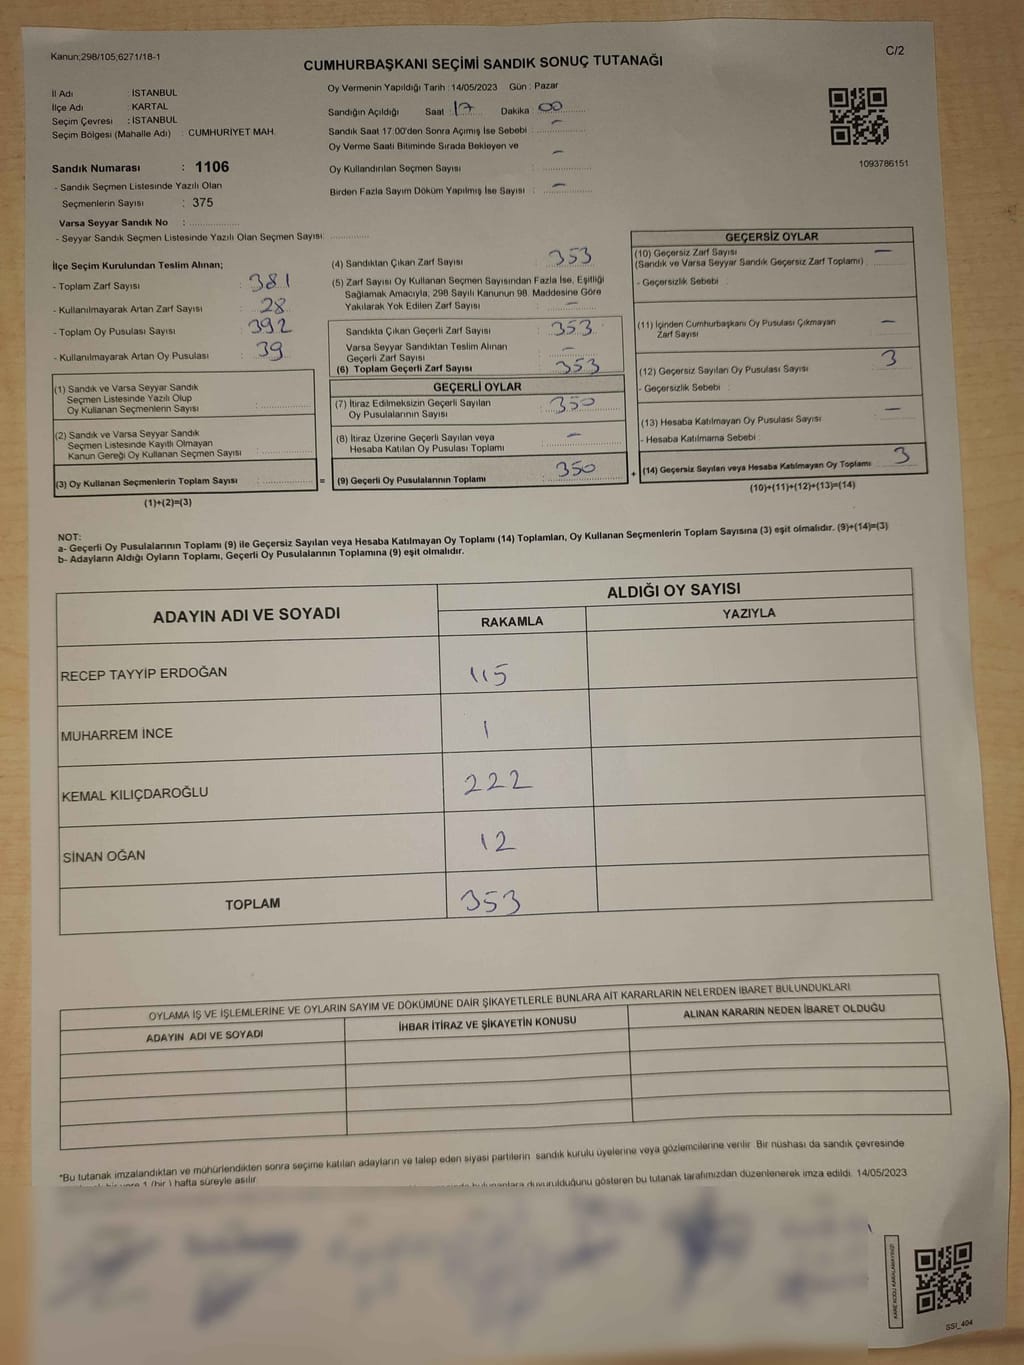 Kanun;298/105;6271/18-1
C/2
CUMHURBAŞKANI SEÇİMİ SANDIK SONUÇ TUTANAĞI
İl Adı : İSTANBUL
İlçe Adı : KARTAL
Seçim Çevresi : İSTANBUL
Seçim Bölgesi (Mahalle Adı) : CUMHURİYET MAH.
Sandık Numarası : 1106
- Sandık Seçmen Listesinde Yazılı Olan
Seçmenlerin Sayısı : 375
Varsa Seyyar Sandık No :
- Seyyar Sandık Seçmen Listesinde Yazılı Olan Seçmen Sayısı:
Oy Vermenin Yapıldığı Tarih : 14/05/2023 Gün : Pazar
Sandığın Açıldığı Saat 17 Dakika 00
Sandık Saat 17.00'den Sonra Açımış İse Sebebi : -
Oy Verme Saati Bitiminde Sırada Bekleyen ve
Oy Kullandırılan Seçmen Sayısı : -
Birden Fazla Sayım Döküm Yapılmış İse Sayısı : -
1093786151
İlçe Seçim Kurulundan Teslim Alınan;
- Toplam Zarf Sayısı : 381
- Kullanılmayarak Artan Zarf Sayısı : 28
- Toplam Oy Pusulası Sayısı : 392
- Kullanılmayarak Artan Oy Pusulası : 39
(1) Sandık ve Varsa Seyyar Sandık
Seçmen Listesinde Yazılı Olup
Oy Kullanan Seçmenlerin Sayısı :
(2) Sandık ve Varsa Seyyar Sandık
Seçmen Listesinde Kayıtlı Olmayan
Kanun Gereği Oy Kullanan Seçmen Sayısı :
(3) Oy Kullanan Seçmenlerin Toplam Sayısı :
(1)+(2)=(3)
(4) Sandıktan Çıkan Zarf Sayısı : 353
(5) Zarf Sayısı Oy Kullanan Seçmen Sayısından Fazla İse, Eşitliği
Sağlamak Amacıyla, 298 Sayılı Kanunun 98. Maddesine Göre
Yakılarak Yok Edilen Zarf Sayısı : -
Sandıkta Çıkan Geçerli Zarf Sayısı : 353
Varsa Seyyar Sandıktan Teslim Alınan
Geçerli Zarf Sayısı : -
(6) Toplam Geçerli Zarf Sayısı : 353
GEÇERLİ OYLAR
(7) İtiraz Edilmeksizin Geçerli Sayılan
Oy Pusulalarının Sayısı : 350
(8) İtiraz Üzerine Geçerli Sayılan veya
Hesaba Katılan Oy Pusulası Toplamı : -
= (9) Geçerli Oy Pusulalarının Toplamı : 350
GEÇERSİZ OYLAR
(10) Geçersiz Zarf Sayısı
(Sandık ve Varsa Seyyar Sandık Geçersiz Zarf Toplamı) -
- Geçersizlik Sebebi :
(11) İçinden Cumhurbaşkanı Oy Pusulası Çıkmayan
Zarf Sayısı -
(12) Geçersiz Sayılan Oy Pusulası Sayısı : 3
- Geçersizlik Sebebi :
(13) Hesaba Katılmayan Oy Pusulası Sayısı -
- Hesaba Katılmama Sebebi :
+ (14) Geçersiz Sayılan veya Hesaba Katılmayan Oy Toplamı : 3
(10)+(11)+(12)+(13)=(14)
NOT:
a- Geçerli Oy Pusulalarının Toplamı (9) ile Geçersiz Sayılan veya Hesaba Katılmayan Oy Toplamı (14) Toplamları, Oy Kullanan Seçmenlerin Toplam Sayısına (3) eşit olmalıdır. (9)+(14)=(3)
b- Adayların Aldığı Oyların Toplamı, Geçerli Oy Pusulalarının Toplamına (9) eşit olmalıdır.
ADAYIN ADI VE SOYADI
ALDIĞI OY SAYISI
RAKAMLA YAZIYLA
RECEP TAYYİP ERDOĞAN 115
MUHARREM İNCE 1
KEMAL KILIÇDAROĞLU 222
SİNAN OĞAN 12
TOPLAM 353
OYLAMA İŞ VE İŞLEMLERİNE VE OYLARIN SAYIM VE DÖKÜMÜNE DAİR ŞİKAYETLERLE BUNLARA AİT KARARLARIN NELERDEN İBARET BULUNDUKLARI
ADAYIN ADI VE SOYADI İHBAR İTİRAZ VE ŞİKAYETİN KONUSU ALINAN KARARIN NEDEN İBARET OLDUĞU
*Bu tutanak imzalandıktan ve mühürlendikten sonra seçime katılan adayların ve talep eden siyasi partilerin sandık kurulu üyelerine veya gözlemcilerine verilir. Bir nüshası da sandık çevresinde
1 (bir) hafta süreyle asılır.
duyurulduğunu gösteren bu tutanak tarafımızdan düzenlenerek imza edildi. 14/05/2023
SSI_404